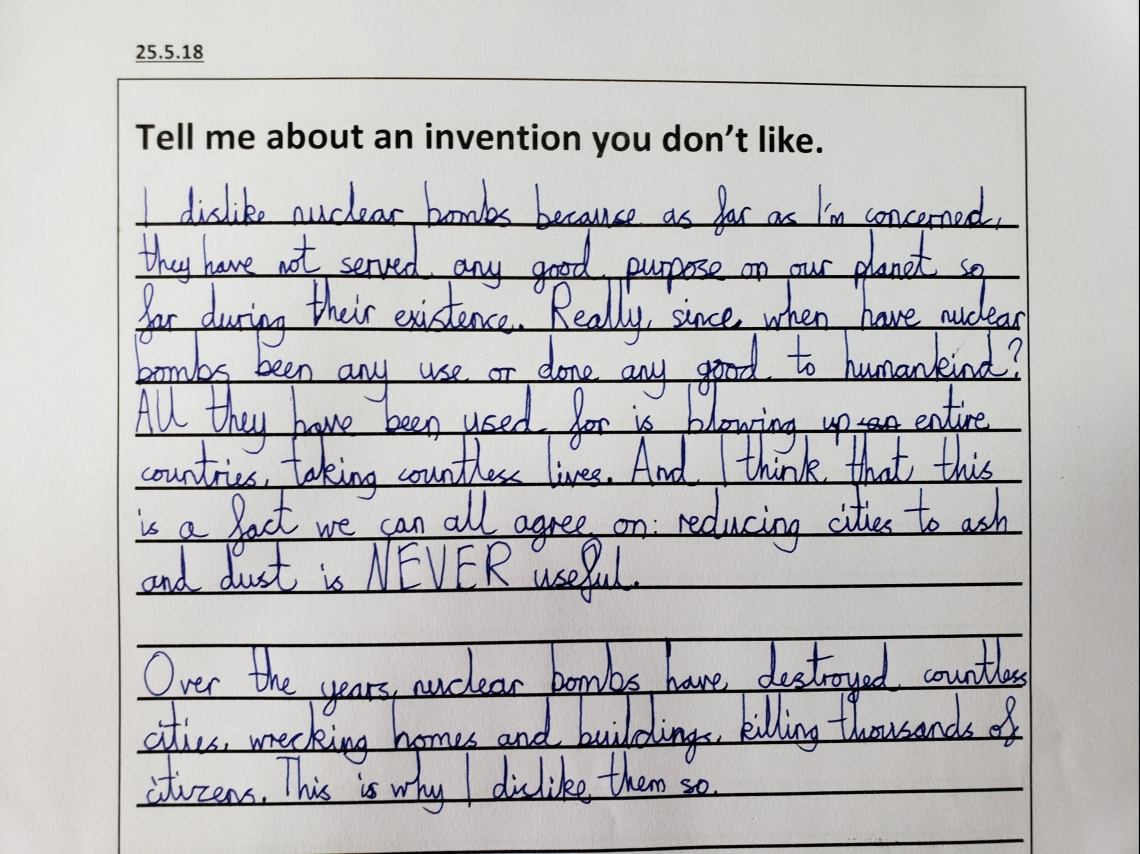 25.5.18
Tell me about an invention you don't like.
I dislike nuclear bombs because as far as I'm concerned,
they have not served any good purpose on our planet so
far during their existence. Really, since when have nuclear
bombs been any use or done any good to humankind?
All they have been used for is blowing up an entire
countries, taking countless lives. And I think that this
is a fact we can all agree on: reducing cities to ash
and dust is NEVER useful.
Over the years, nuclear bombs have destroyed countless
cities, wrecking homes and buildings, killing thousands of
citizens. This is why I dislike them so.